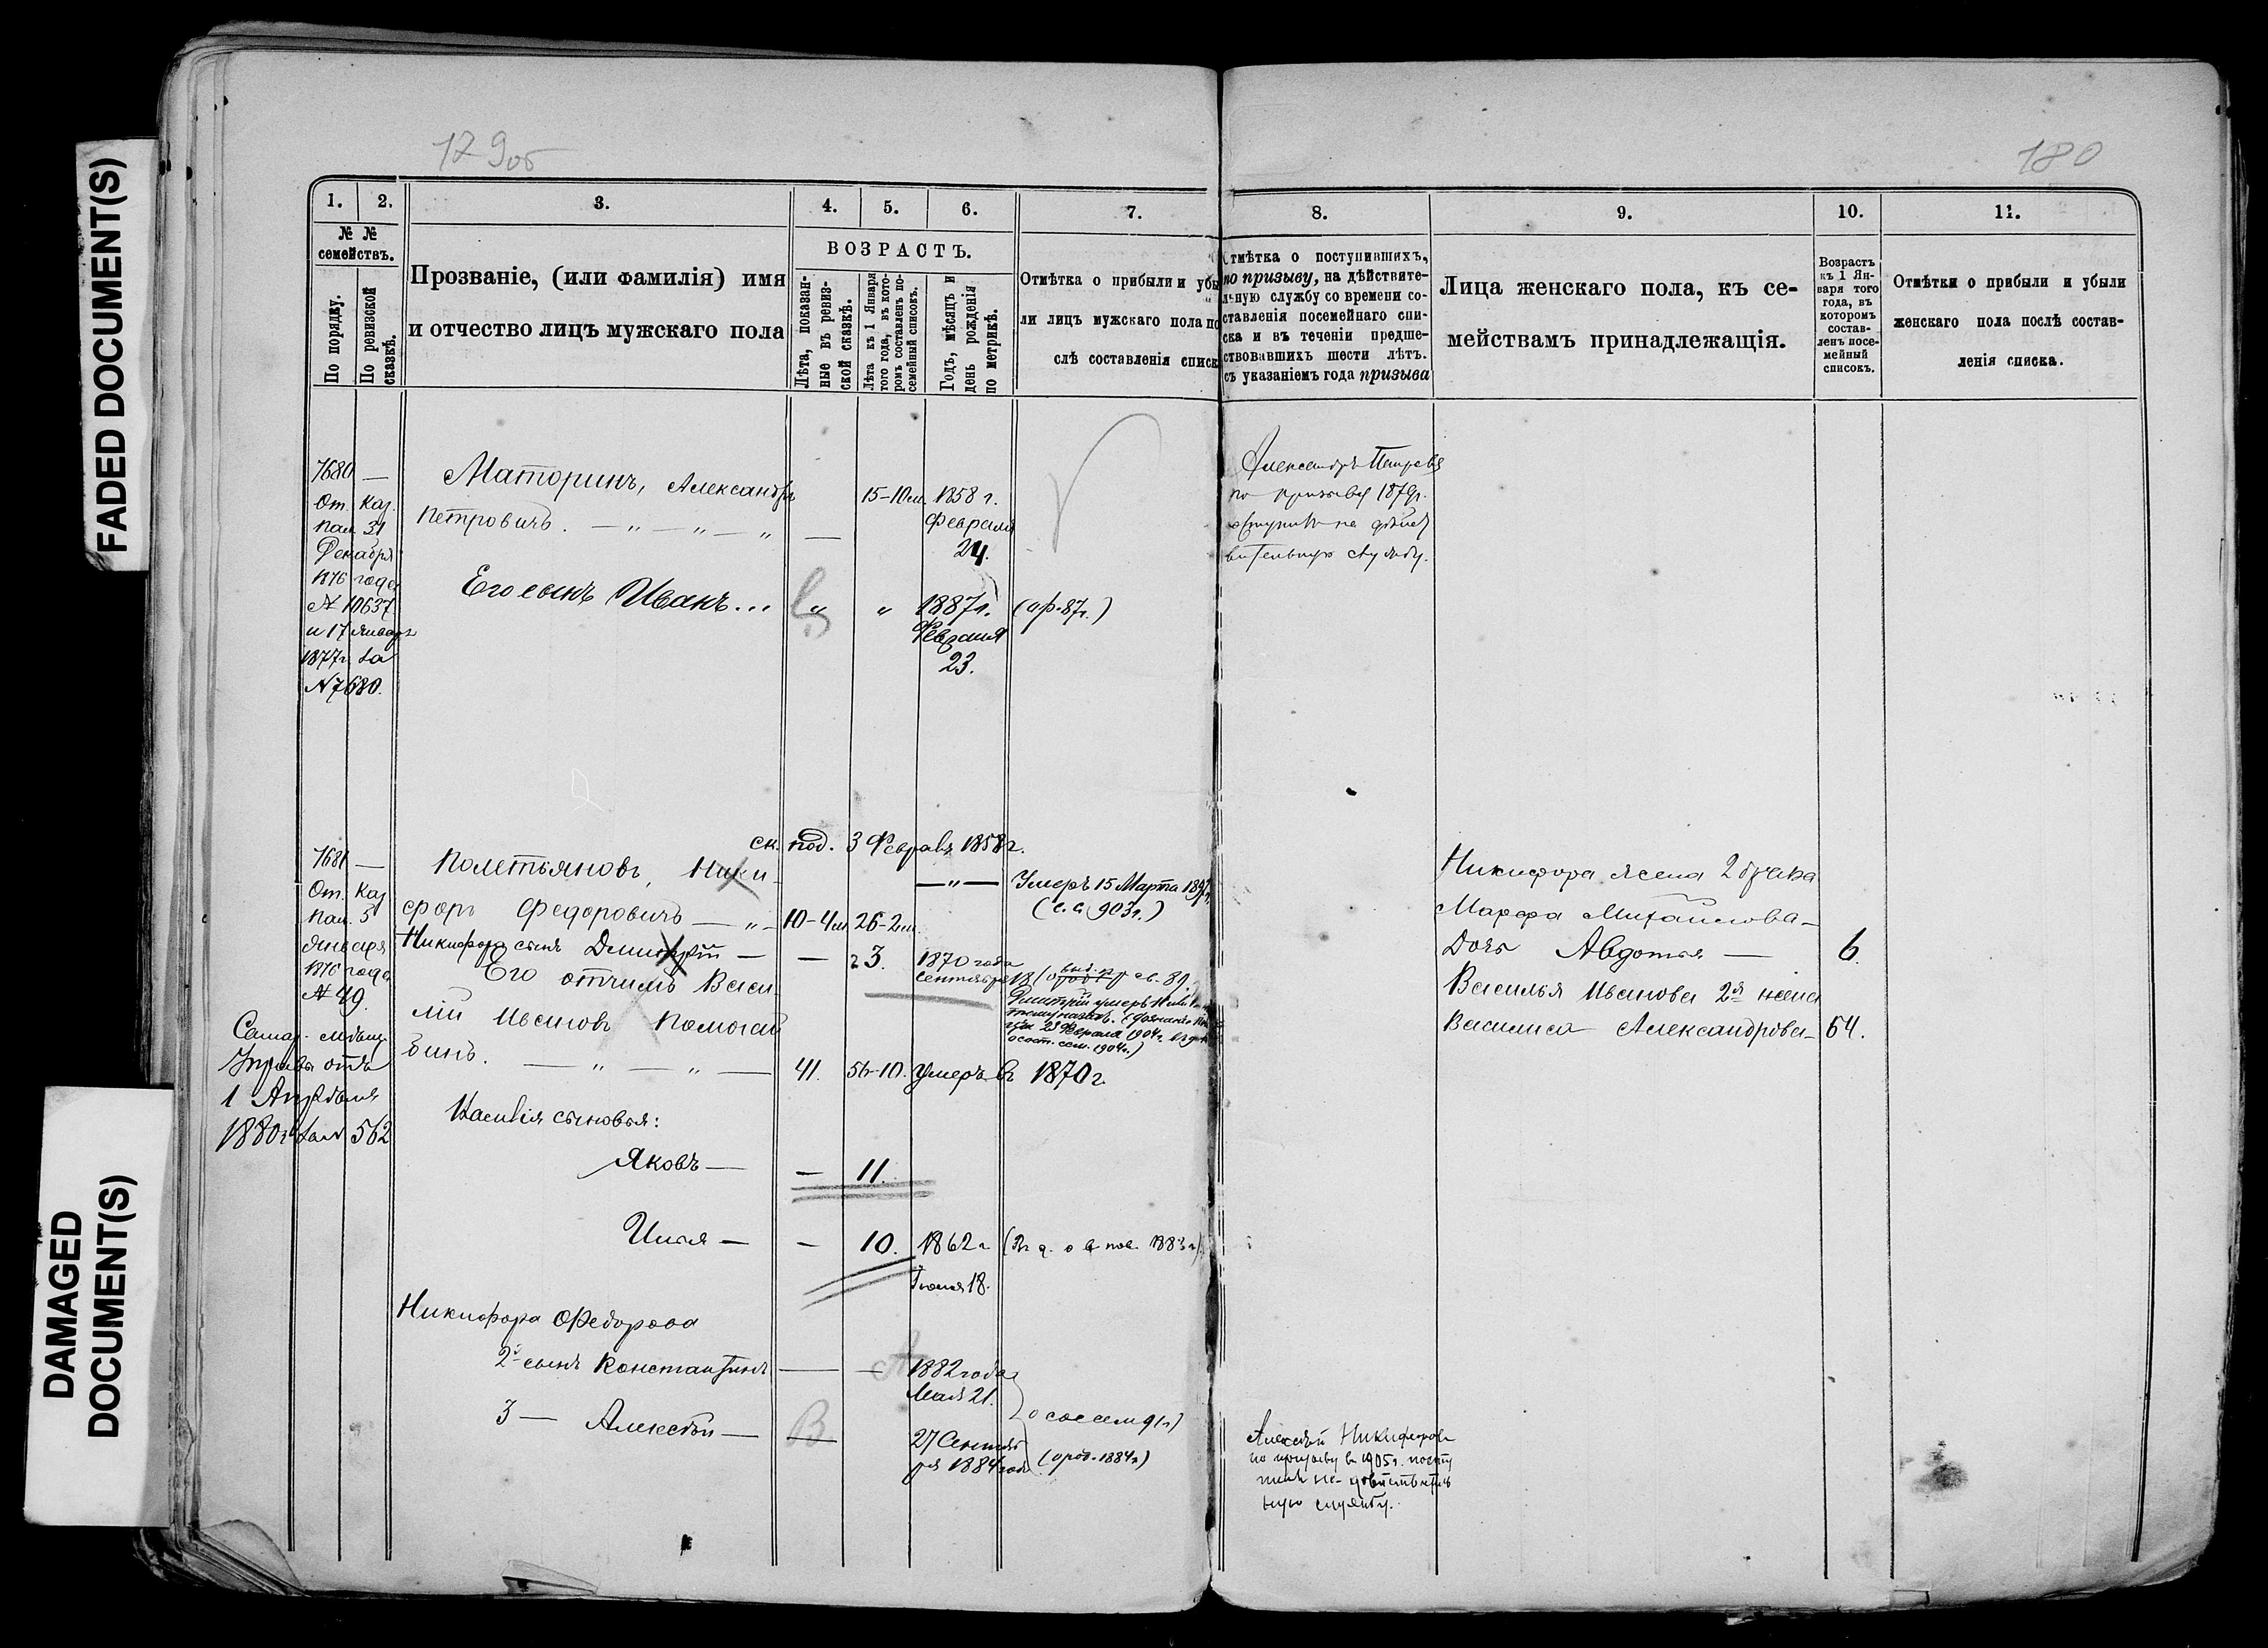 FADED DOCUMENT(S)
DAMAGED
DOCUMENT(S)
179об
180
1.
2.
3.
4.
5.
6.
7.
8.
9.
10.
11.
№ №
семействъ.
По порядку.
По ревизской
сказкѣ.
Прозваніе, (или фамилія) имя
и отчество лицъ мужскаго пола
ВОЗРАСТЪ.
Лѣта, показан-
ные въ ревиз-
ской сказкѣ.
Лѣта къ 1 Января
того года, въ кото-
ромъ составленъ по-
семейный списокъ.
Годъ, мѣсяцъ и
день рожденія
по метрикѣ.
Отмѣтка о прибыли и убы
ли лицъ мужскаго пола по
слѣ составленія списк
Отмѣтка о поступившихъ,
по призыву, на дѣйствите-
льную службу со времени со-
ставленія посемейнаго спи-
ска и въ теченіи предше-
ствовавшихъ шести лѣтъ.
съ указаніемъ года призыва
Лица женскаго пола, къ се-
мействамъ принадлежащія.
Возрастъ
къ 1 Ян-
варя того
года, въ
которомъ
состав-
ленъ посе-
мейный
списокъ.
Отмѣтки о прибыли и убыли
женскаго пола послѣ состав-
ленія списка.
7680 —
От. Каз.
пал. 31
Декабря
1876 года
№ 10637
и 17 Января
1877г. за
№ 7680.
Маторинъ, Александръ
Петровичъ. — „ — „ — „ —
15-10м. 1858 г.
Февраля
24.
Александръ Петровъ
по призыву 1879г.
поступилъ на дѣйст
вительную службу.
Его сынъ Иванъ... „ „ 1887г. (ор. 87г.)
Февраля
23.
ск. под. 3 Февраля 1858г.
7681 —
От. Каз
пал. 5
Января
1876 года
№ 49.
Самар. мѣщ.
Управы отъ
1 Апрѣля
1880г. за № 562
Полетьяновъ, Ники-
форъ Федоровичъ — „ — 10-4м 26-2м.
— „ — Умеръ 15 Марта
903г.)
Никифора сынъ Дмитрій — — 3. 1870 года
Сентября
Дмитрій умеръ
23 Февраля 1904г.
1904г.)
Его отчимъ Васи-
лій Ивановъ Помогай
бинъ. — „ — „ — 41. 56-10. Умеръ въ 1870г.
Василія сыновья:
Яковъ — — 11.
Илья — — 10. 1862г
Іюля 18.
Никифора Федорова
2й сынъ Константинъ — — 1882 года
Мая 21.
3 — Алексѣй — В 27 Сентяб
ря 1884 года (ород. 1884г)
Никифора жена 2 брака
Марфа Михайлова —
Дочь Авдотья — 6.
Василья Иванова 2я жена
Василиса Александрова — 54.
Алексѣй Никифоровъ
по призыву въ 1905г. посту
пилъ на дѣйствитель
ную службу.